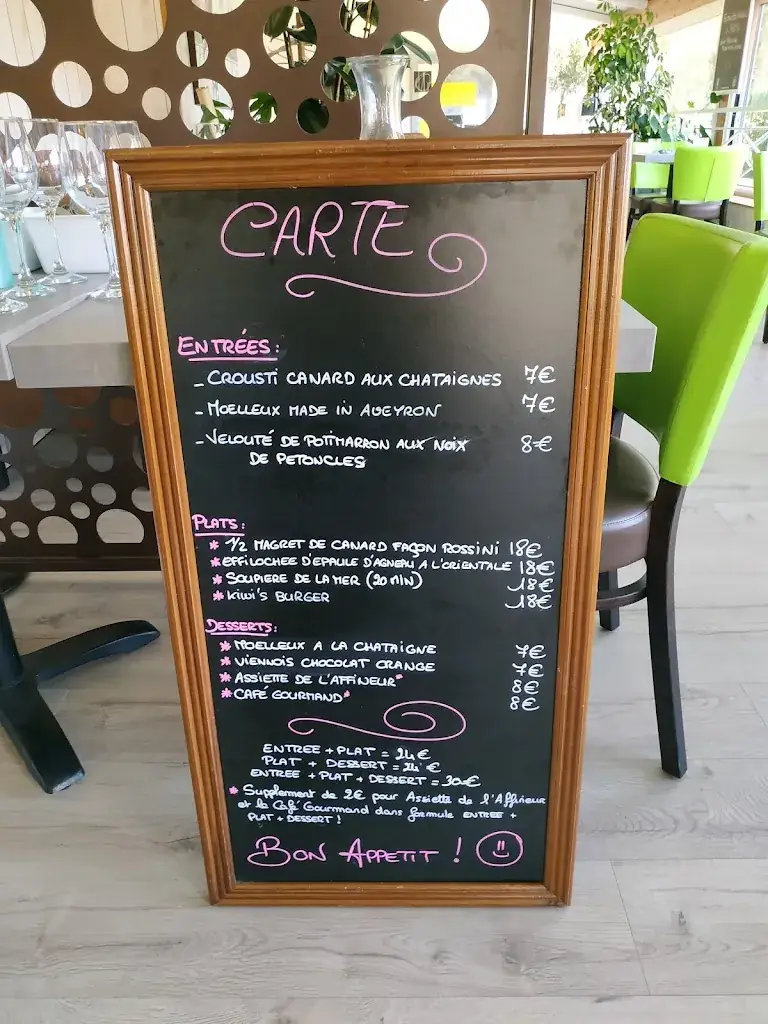 CARTE
ENTRÉES:
- CROUSTI CANARD AUX CHATAIGNES 7€
- MOELLEUX MADE IN AVEYRON 7€
- VELOUTÉ DE POTIMARRON AUX NOIX 8€
DE PETONCLES
PLATS:
* 1/2 MAGRET DE CANARD FAÇON ROSSINI 18€
* EFFILOCHEE D'EPAULE D'AGNEAU A L'ORIENTALE 18€
* SOUPIERE DE LA MER (20 MIN) 18€
* KIWI'S BURGER 18€
DESSERTS:
* MOELLEUX A LA CHATAIGNE 7€
* VIENNOIS CHOCOLAT ORANGE 7€
* ASSIETTE DE L'AFFINEUR* 8€
* CAFÉ GOURMAND* 8€
ENTREE + PLAT = 24€
PLAT + DESSERT = 24€
ENTREE + PLAT + DESSERT = 30€
* Supplement de 2€ pour Assiette de l'Affineur
et le Café Gourmand dans formule ENTREE +
PLAT + DESSERT!
BON APPETIT !